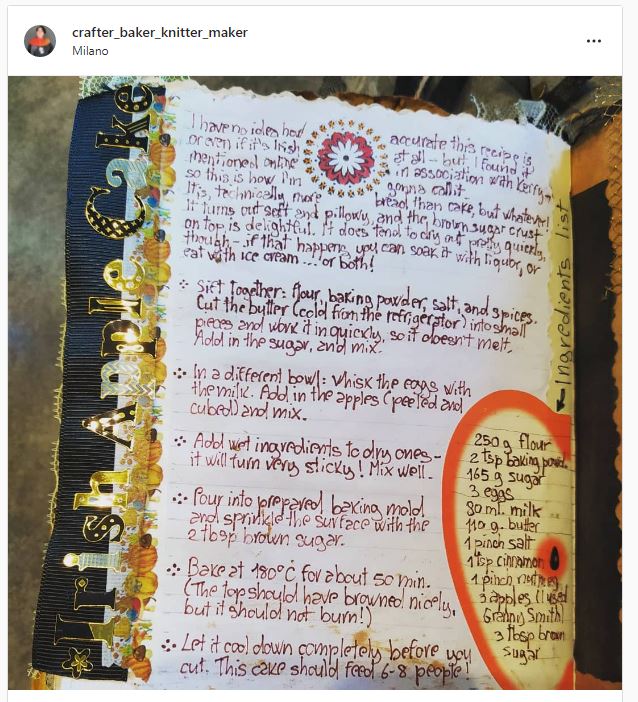 crafter_baker_knitter_maker
Milano
Irish Apple Cake
I have no idea how accurate this recipe is
or even if it's Irish at all - but I found it
mentioned online in association with Kerry-
so this is how I'm gonna call it.
It is, technically, more bread than cake, but whatever!
It turns out soft and pillowy, and the brown sugar crust
on top is delightful. It does tend to dry out pretty quickly,
though - if that happens, you can soak it with liquor, or
eat with ice cream... or both!
Sift together: flour, baking powder, salt, and spices.
Cut the butter (cold from the refrigerator) into small
pieces and work it in quickly, so it doesn't melt.
Add in the sugar, and mix.
In a different bowl: whisk the eggs with
the milk. Add in the apples (peeled and
cubed) and mix.
Add wet ingredients to dry ones -
it will turn very sticky! Mix well.
Pour into prepared baking mold
and sprinkle the surface with the
2 tbsp brown sugar.
Bake at 180°C for about 50 min.
(The top should have browned nicely,
but it should not burn!)
Let it cool down completely before you
cut. This cake should feed 6-8 people!
Ingredients list
250 g flour
2 tsp baking powd.
165 g sugar
3 eggs
80 ml milk
110 g butter
1 pinch salt
tsp cinnamon
1 pinch nutmeg
3 apples (I used
Granny Smith)
3 tbsp brown
sugar